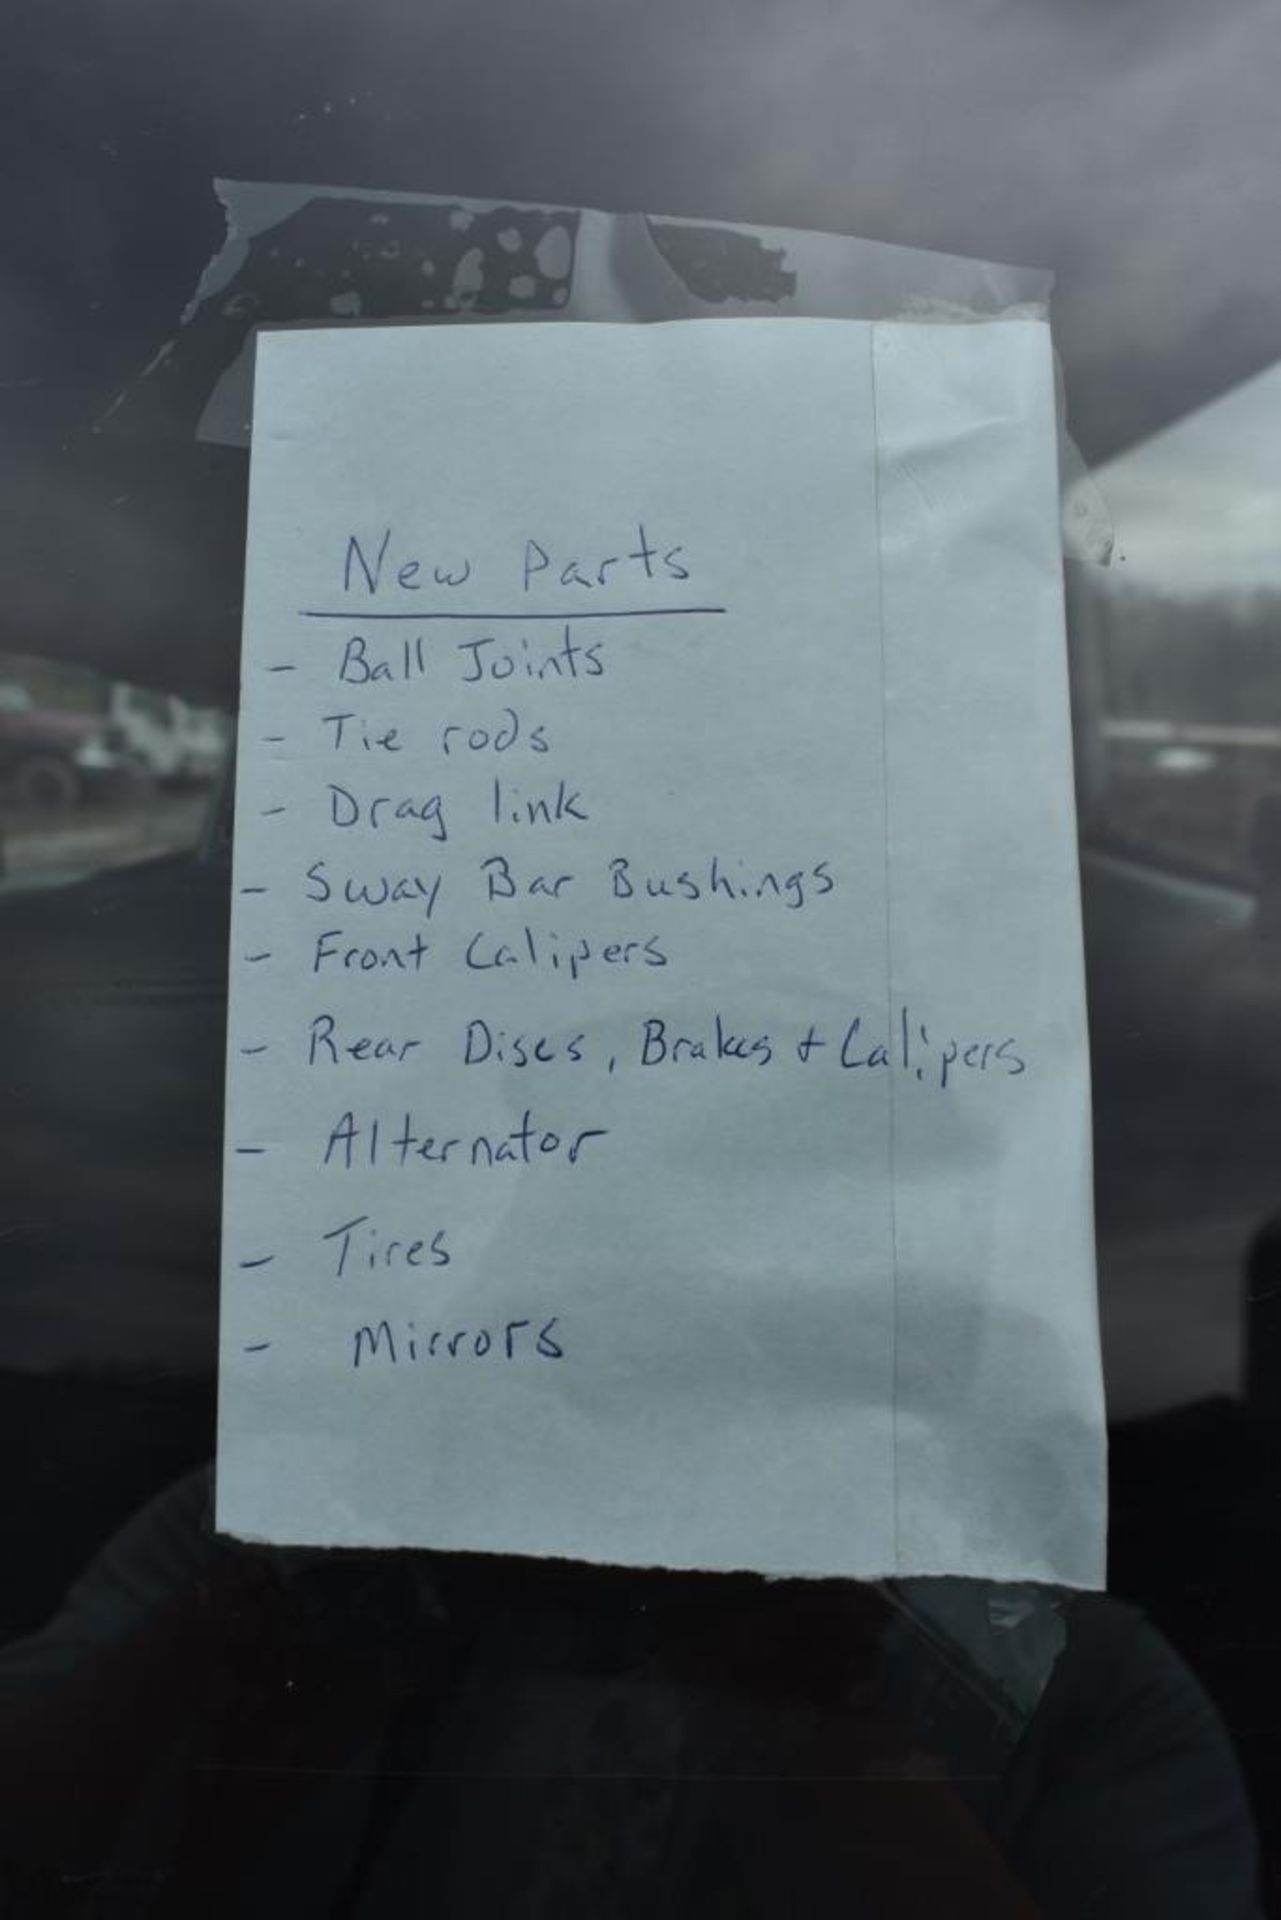 New Parts
- Ball Joints
- Tie rods
- Drag link
- Sway Bar Bushings
- Front Calipers
- Rear Discs, Brakes + Calipers
- Alternator
- Tires
- Mirrors